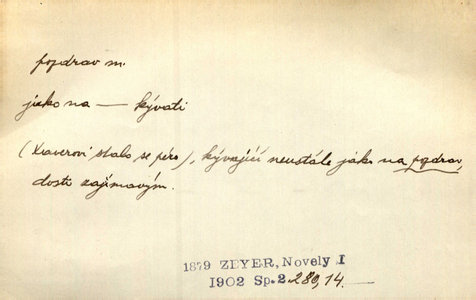 pozdrav m.
jako na — kývati
(Xaverovi stalo se péro), kývající neustále jako na pozdrav,
dosti zajímavým.
1879 ZEYER, Novely I
1902 Sp. 2. 280, 14.